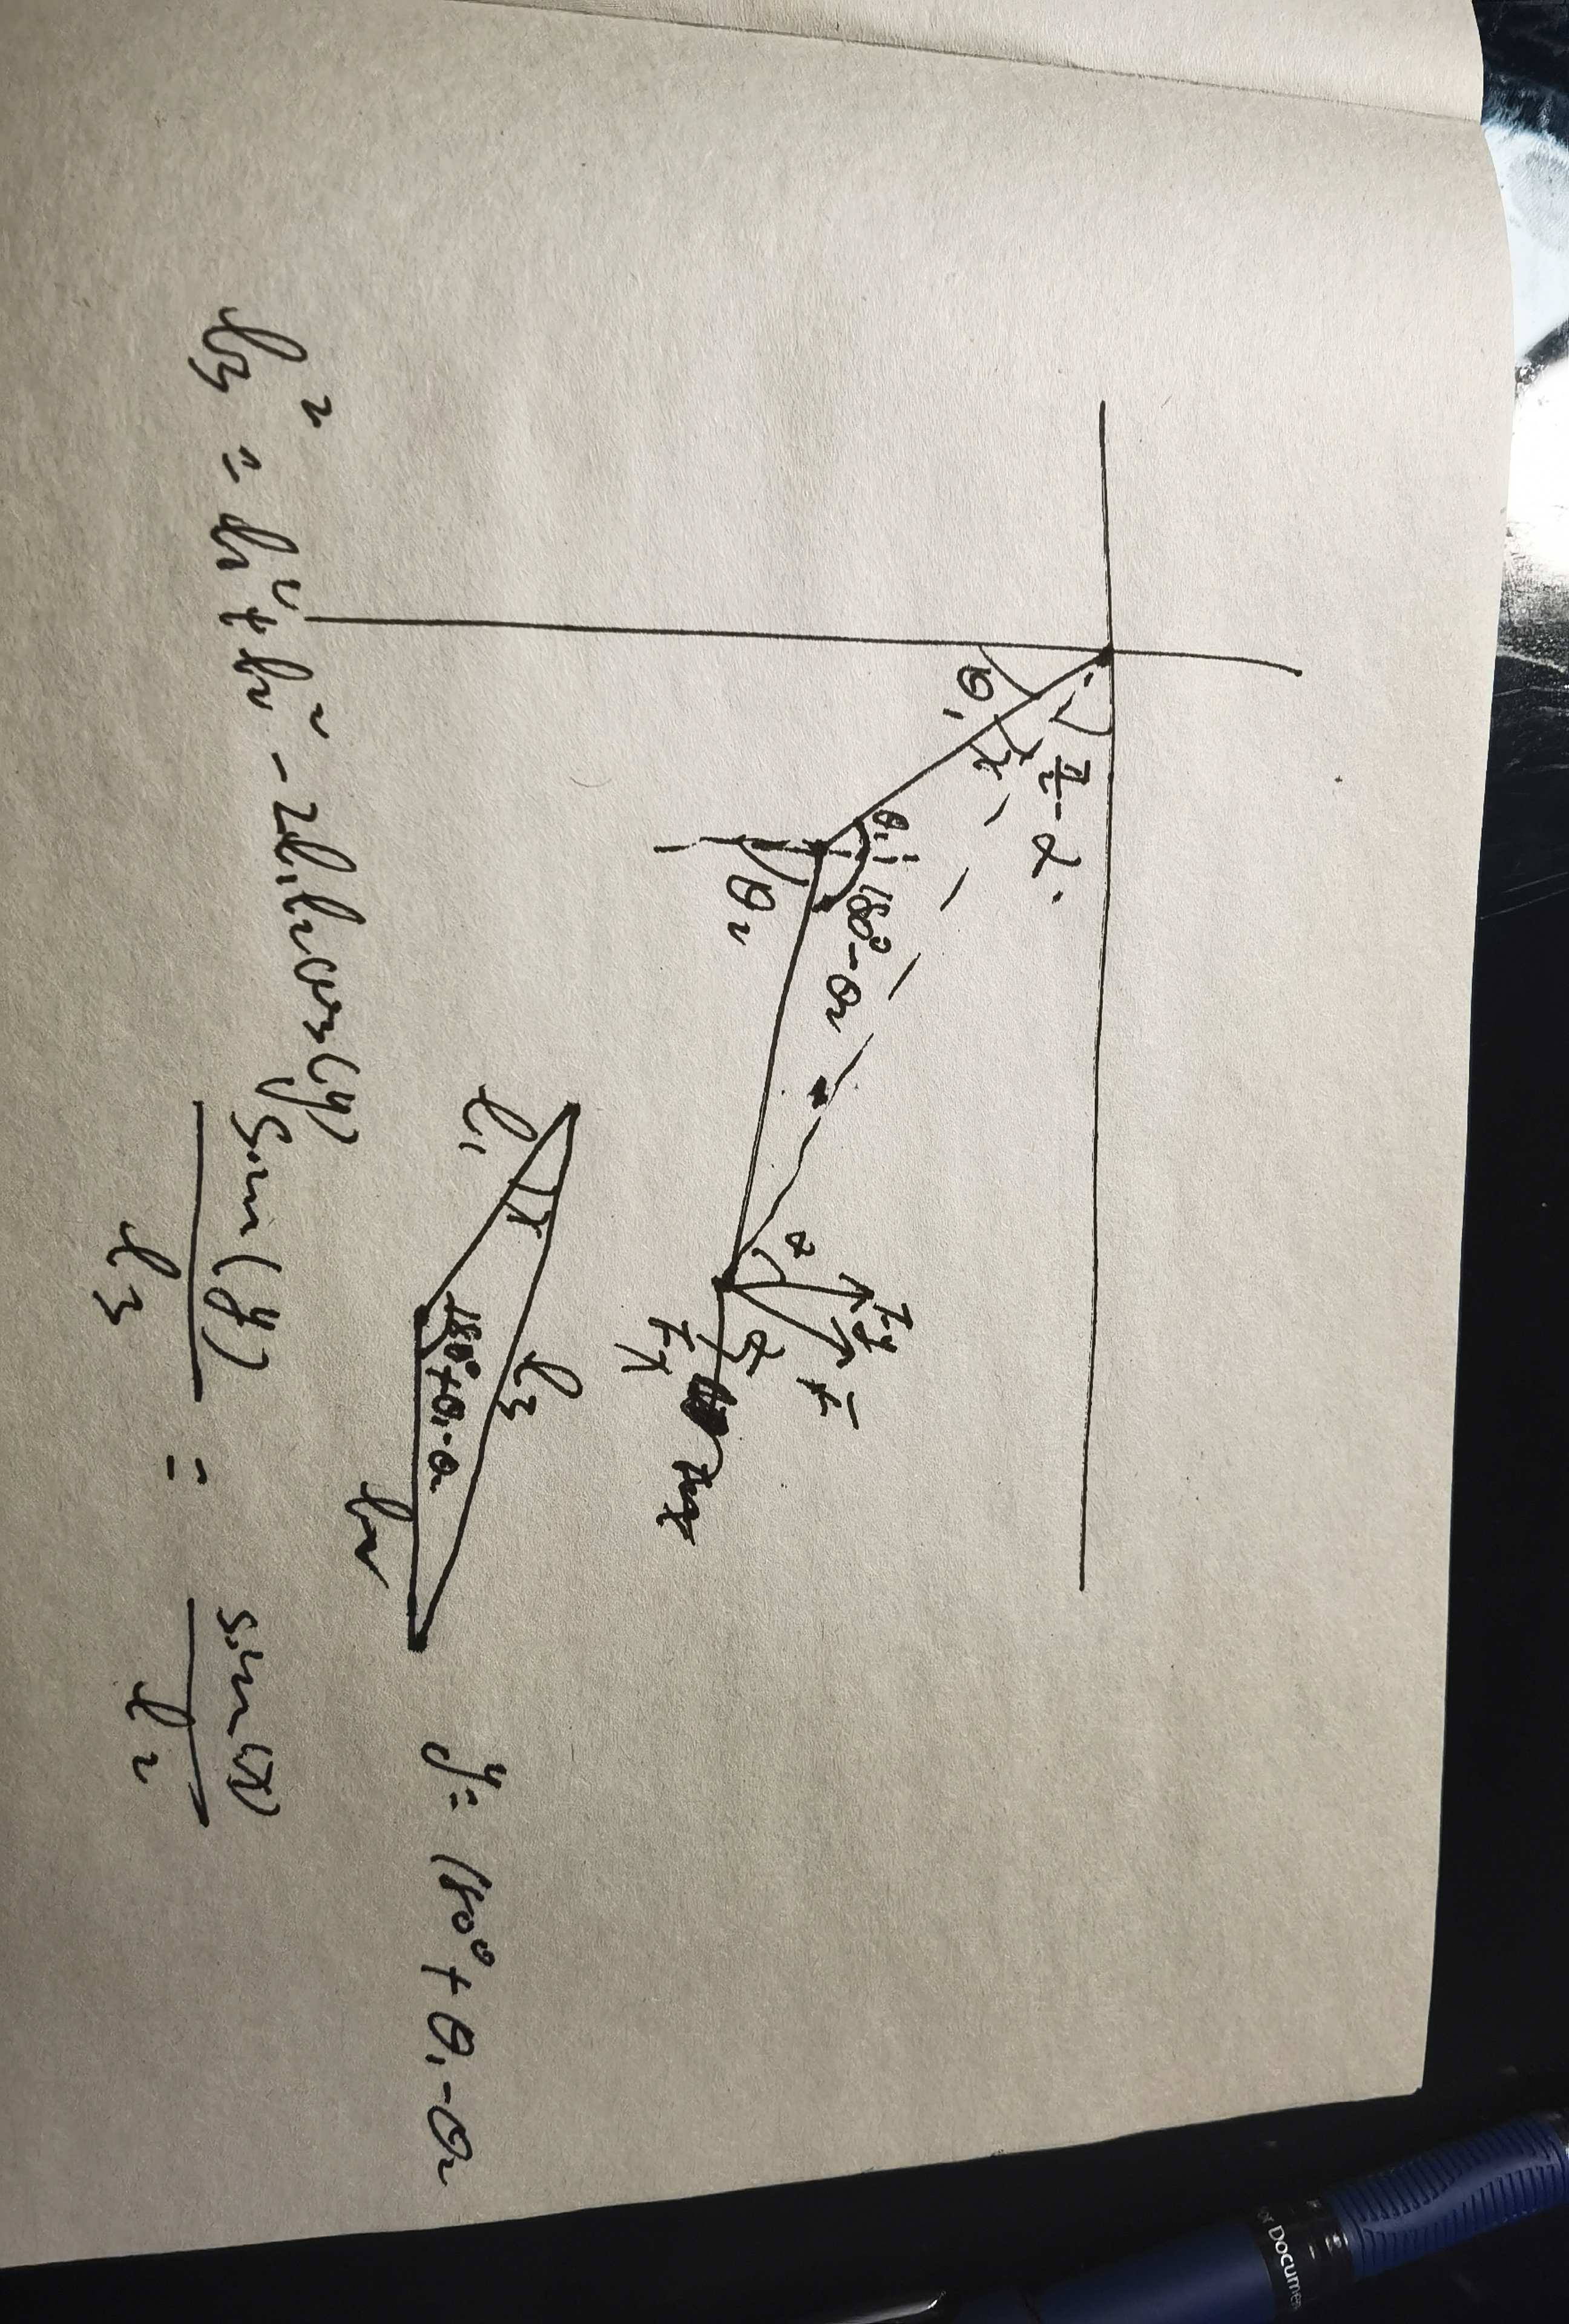 or Documen
π/2 - α
θ₁
x
θ₁ 180° - θ₂
θ₂
Fy
F
α
α
Fx
l₃
x
l₁
180° + θ₁ - θ₂
l₂
y = 180° + θ₁ - θ₂
l₃² = l₁² + l₂² - 2l₁l₂cos(y)
sin(y)/l₃ = sin(x)/l₂